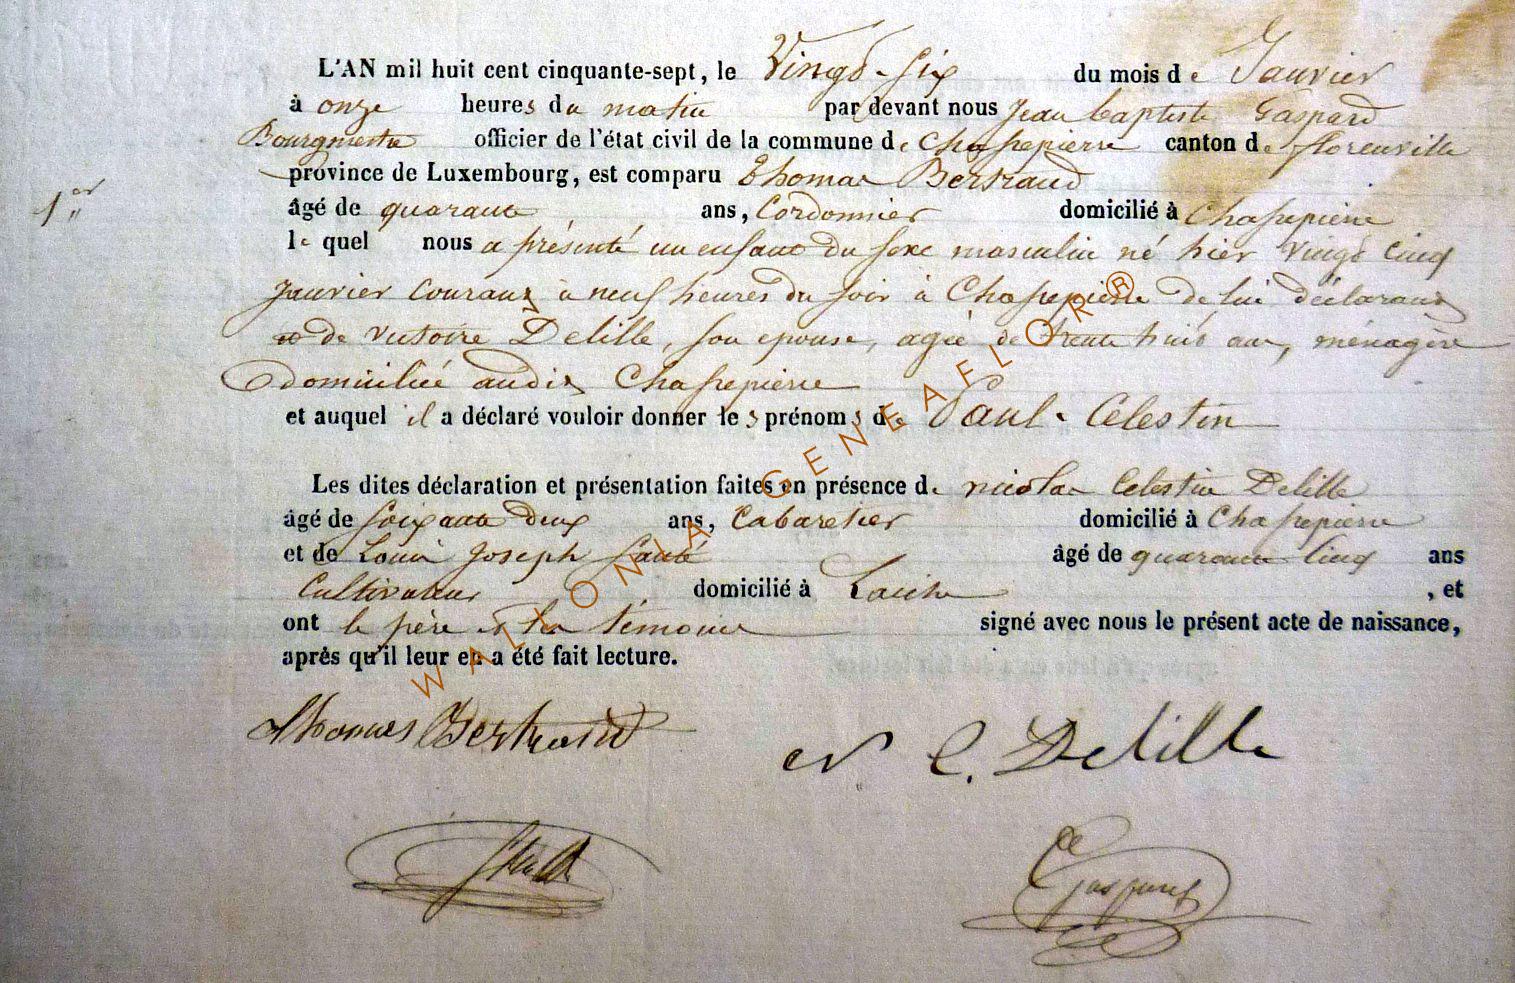 L'AN mil huit cent cinquante-sept, le Vingt-six du mois de Janvier
à onze heures du matin par devant nous Jean baptiste Gaspard
Bourgmestre officier de l'état civil de la commune de Chassepierre canton de florenville
province de Luxembourg, est comparu Thomas Bertrand
1er
âgé de quarante ans, Cordonnier domicilié à Chassepierre
le quel nous a présenté un enfant du sexe masculin né hier vingt cinq
janvier courant à neuf heures du soir à Chassepierre de lui déclarant
et de victoire Delille, son epouse, agée de trente huit ans, ménagère
domiciliée audit Chassepierre
et auquel il a déclaré vouloir donner les prénoms de Paul-Celestin
Les dites déclaration et présentation faites en présence de nicolas Celestin Delille
âgé de soixante deux ans, Cabaretier domicilié à Chassepierre
et de Louis Joseph âgé de quarante cinq ans
Cultivateur domicilié à Laiche, et
ont le père et les témoins signé avec nous le présent acte de naissance,
après qu'il leur en a été fait lecture.
Thomas Bertrand
N C. Delille
Gaspard
WALLONIA GENEAFLOR ®